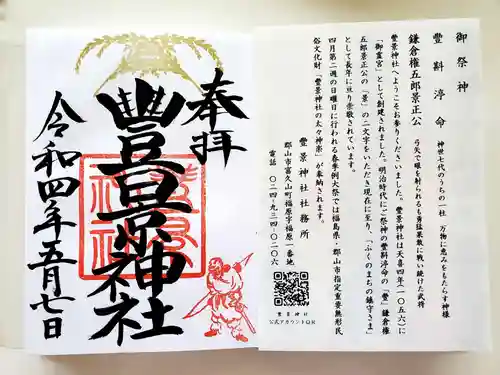 奉拝
豊景神社
令和四年五月七日
御祭神
豐斟渟命 神世七代のうちの一社 万物に恵みをもたらす神様
鎌倉権五郎景正公 弓矢で眼を射られるも勇猛果敢に戦い続けた武将
豊景神社へようこそお参りくださいました。豊景神社は天喜四年(一〇五六)に
「御霊宮」として創建されました。明治時代にご祭神の豐斟渟命の「豊」鎌倉権
五郎景正公の「景」の二文字をいただき現在に至り、「ふくのまちの鎮守さま」
として長年に亘り崇敬されています。
四月第二週の日曜日に行われる春季例大祭では福島県・郡山市指定重要無形民
俗文化財「豊景神社の太々神楽」が奉納されます。
豊景神社社務所
郡山市富久山町福原字福原一番地
電話 〇二四-九三四-〇二〇六
豊景神社
公式アカウントQR